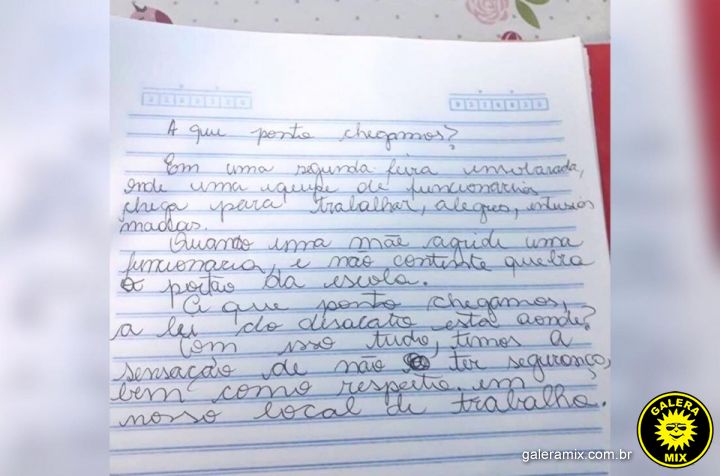 A que ponto chegamos?
Em uma segunda-feira ensolarada,
onde uma equipe de funcionários
chega para trabalhar, alegres, entusias
madas.
Quando uma mãe agride uma
funcionaria, e não contente quebra
o portão da escola.
A que ponto chegamos,
a lei do desacato está aonde?
Com isso tudo, temos a
sensação de não ter segurança,
bem como respeito em
nosso local de trabalho.
GALERA
MIX
galeramix.com.br